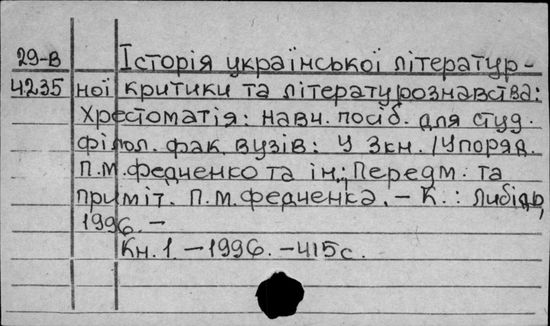 29-В Історія української літератур-
4235 ної критики та літературознавства:
Хрестоматія: навч. посіб. для студ.
філол. фак. вузів: У 3кн. /Упоряд.
П.М.Федченко та ін.; Передм. та
приміт. П.М.Федченка. – К.: Либідь,
1996. –
Кн. 1. – 1996. – 415с.